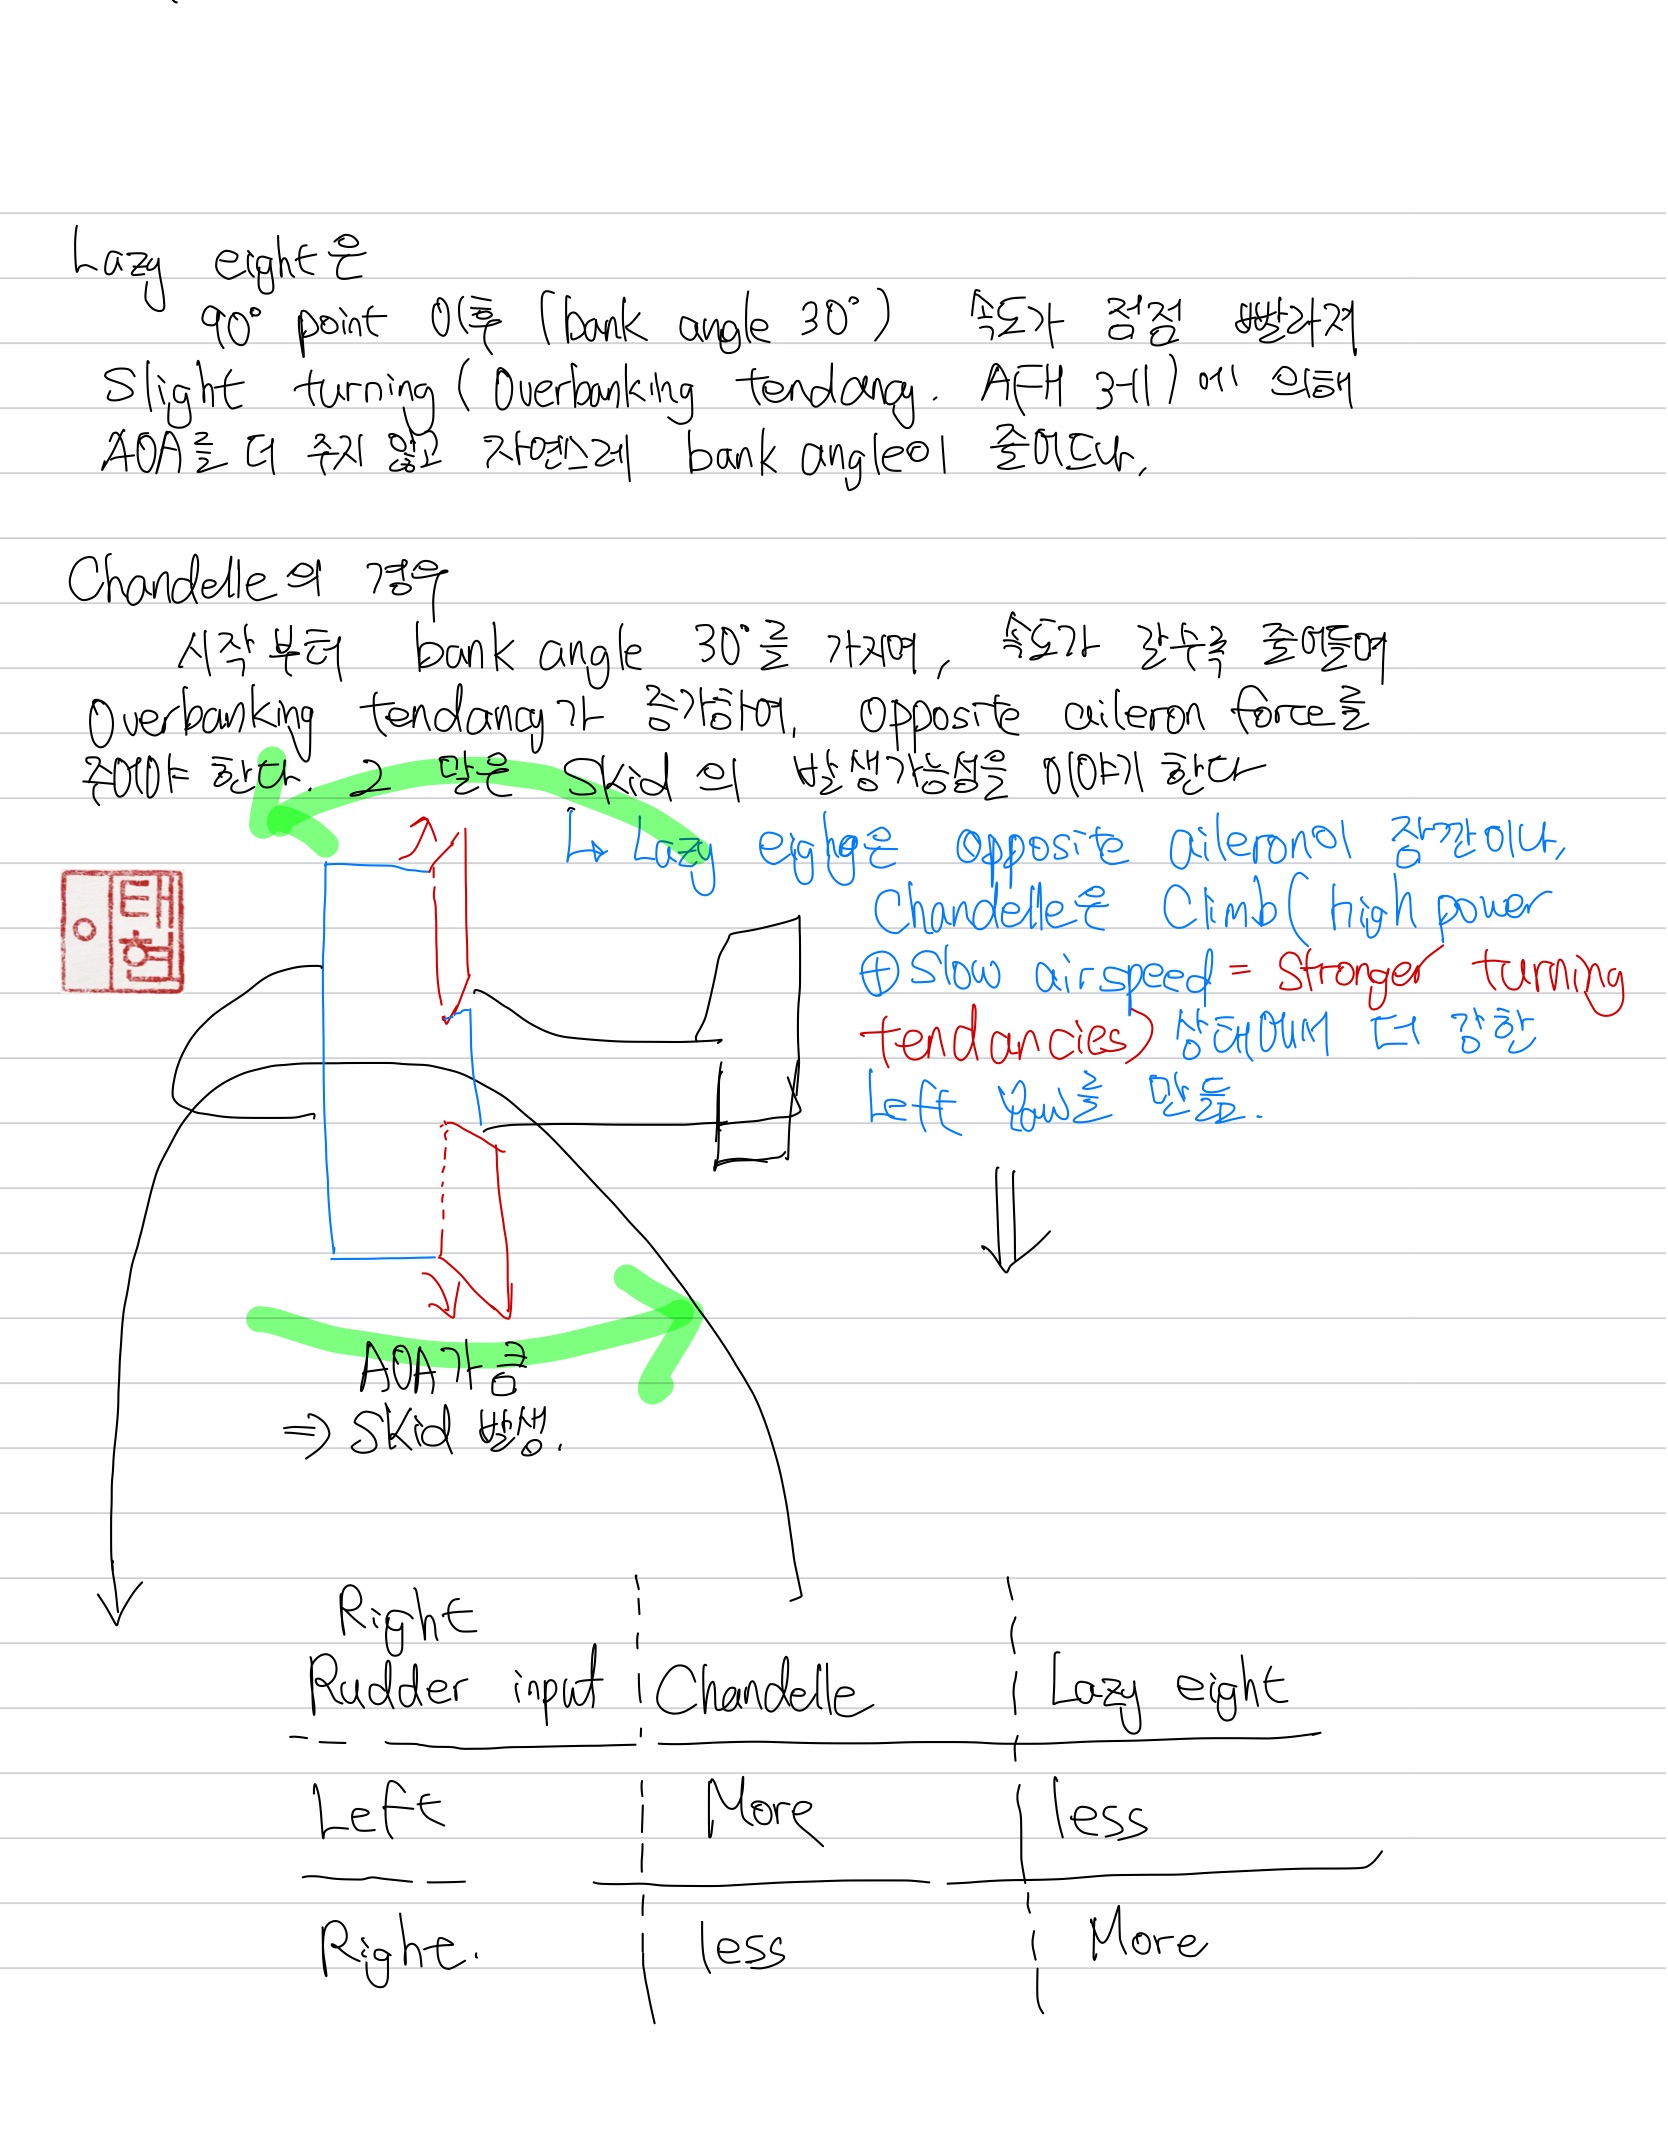 Lazy eight은
90° point 이후 (bank angle 30°) 속도가 점점 빨라져
Slight turning (Overbanking tendancy. AFH 3-11)에 의해
AOA를 더 주지 않고 자연스레 bank angle이 줄어드나,
Chandelle의 경우
시작부터 bank angle 30°를 가지며, 속도가 갈수록 줄어들며
Overbanking tendancy가 증가하여, opposite aileron force를
주어야 한다. 그 말은 Skid의 발생가능성을 이야기 한다
↳ Lazy eighg은 opposite aileron이 잠깐이나,
Chandelle은 Climb (high power
⊕ Slow airspeed = Stronger turning
tendancies) 상태에서 더 강한
Left Yaw를 만듦.
태
이
현
AOA가 큼
⇒ Skid 발생.
Right
Rudder input Chandelle Lazy eight
Left More less
Right. less More